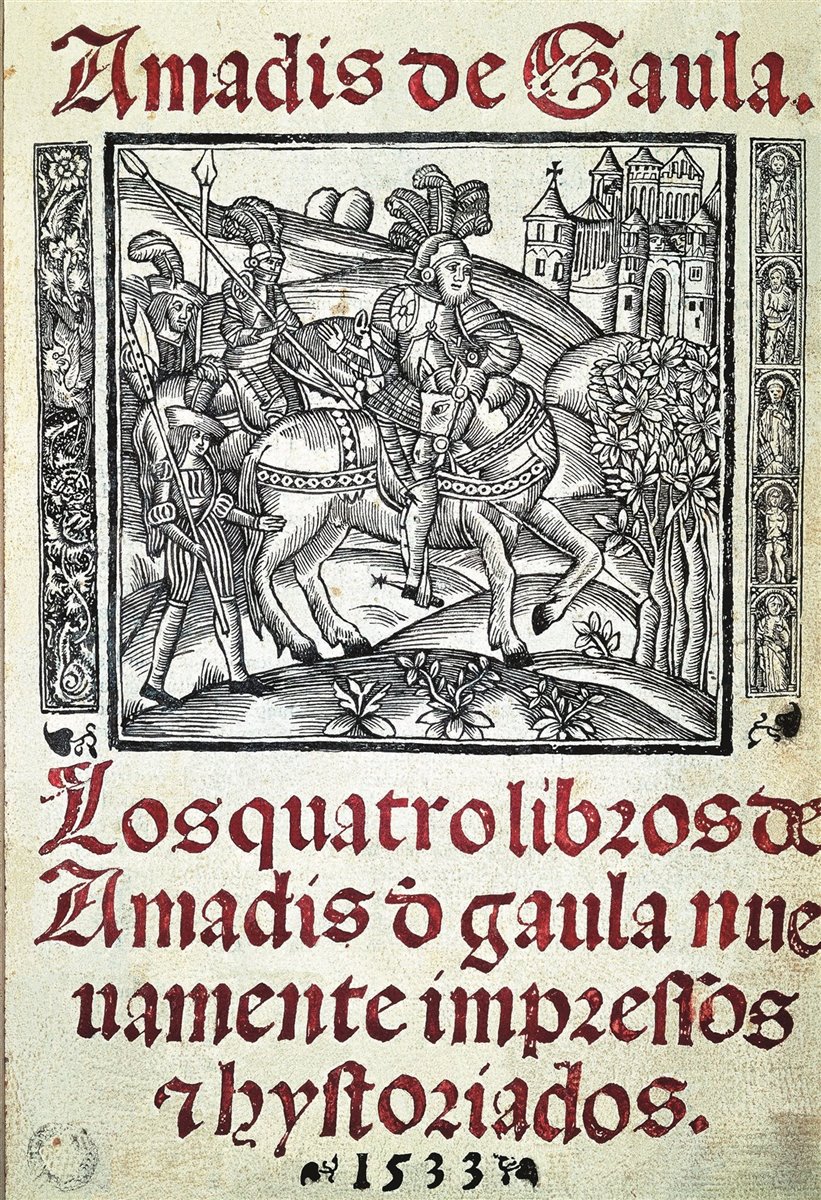 Amadis de Gaula.
Los quatro libros de
Amadis đ gaula nue
uamente impreſſos
⁊ hyſtoriados.
1533